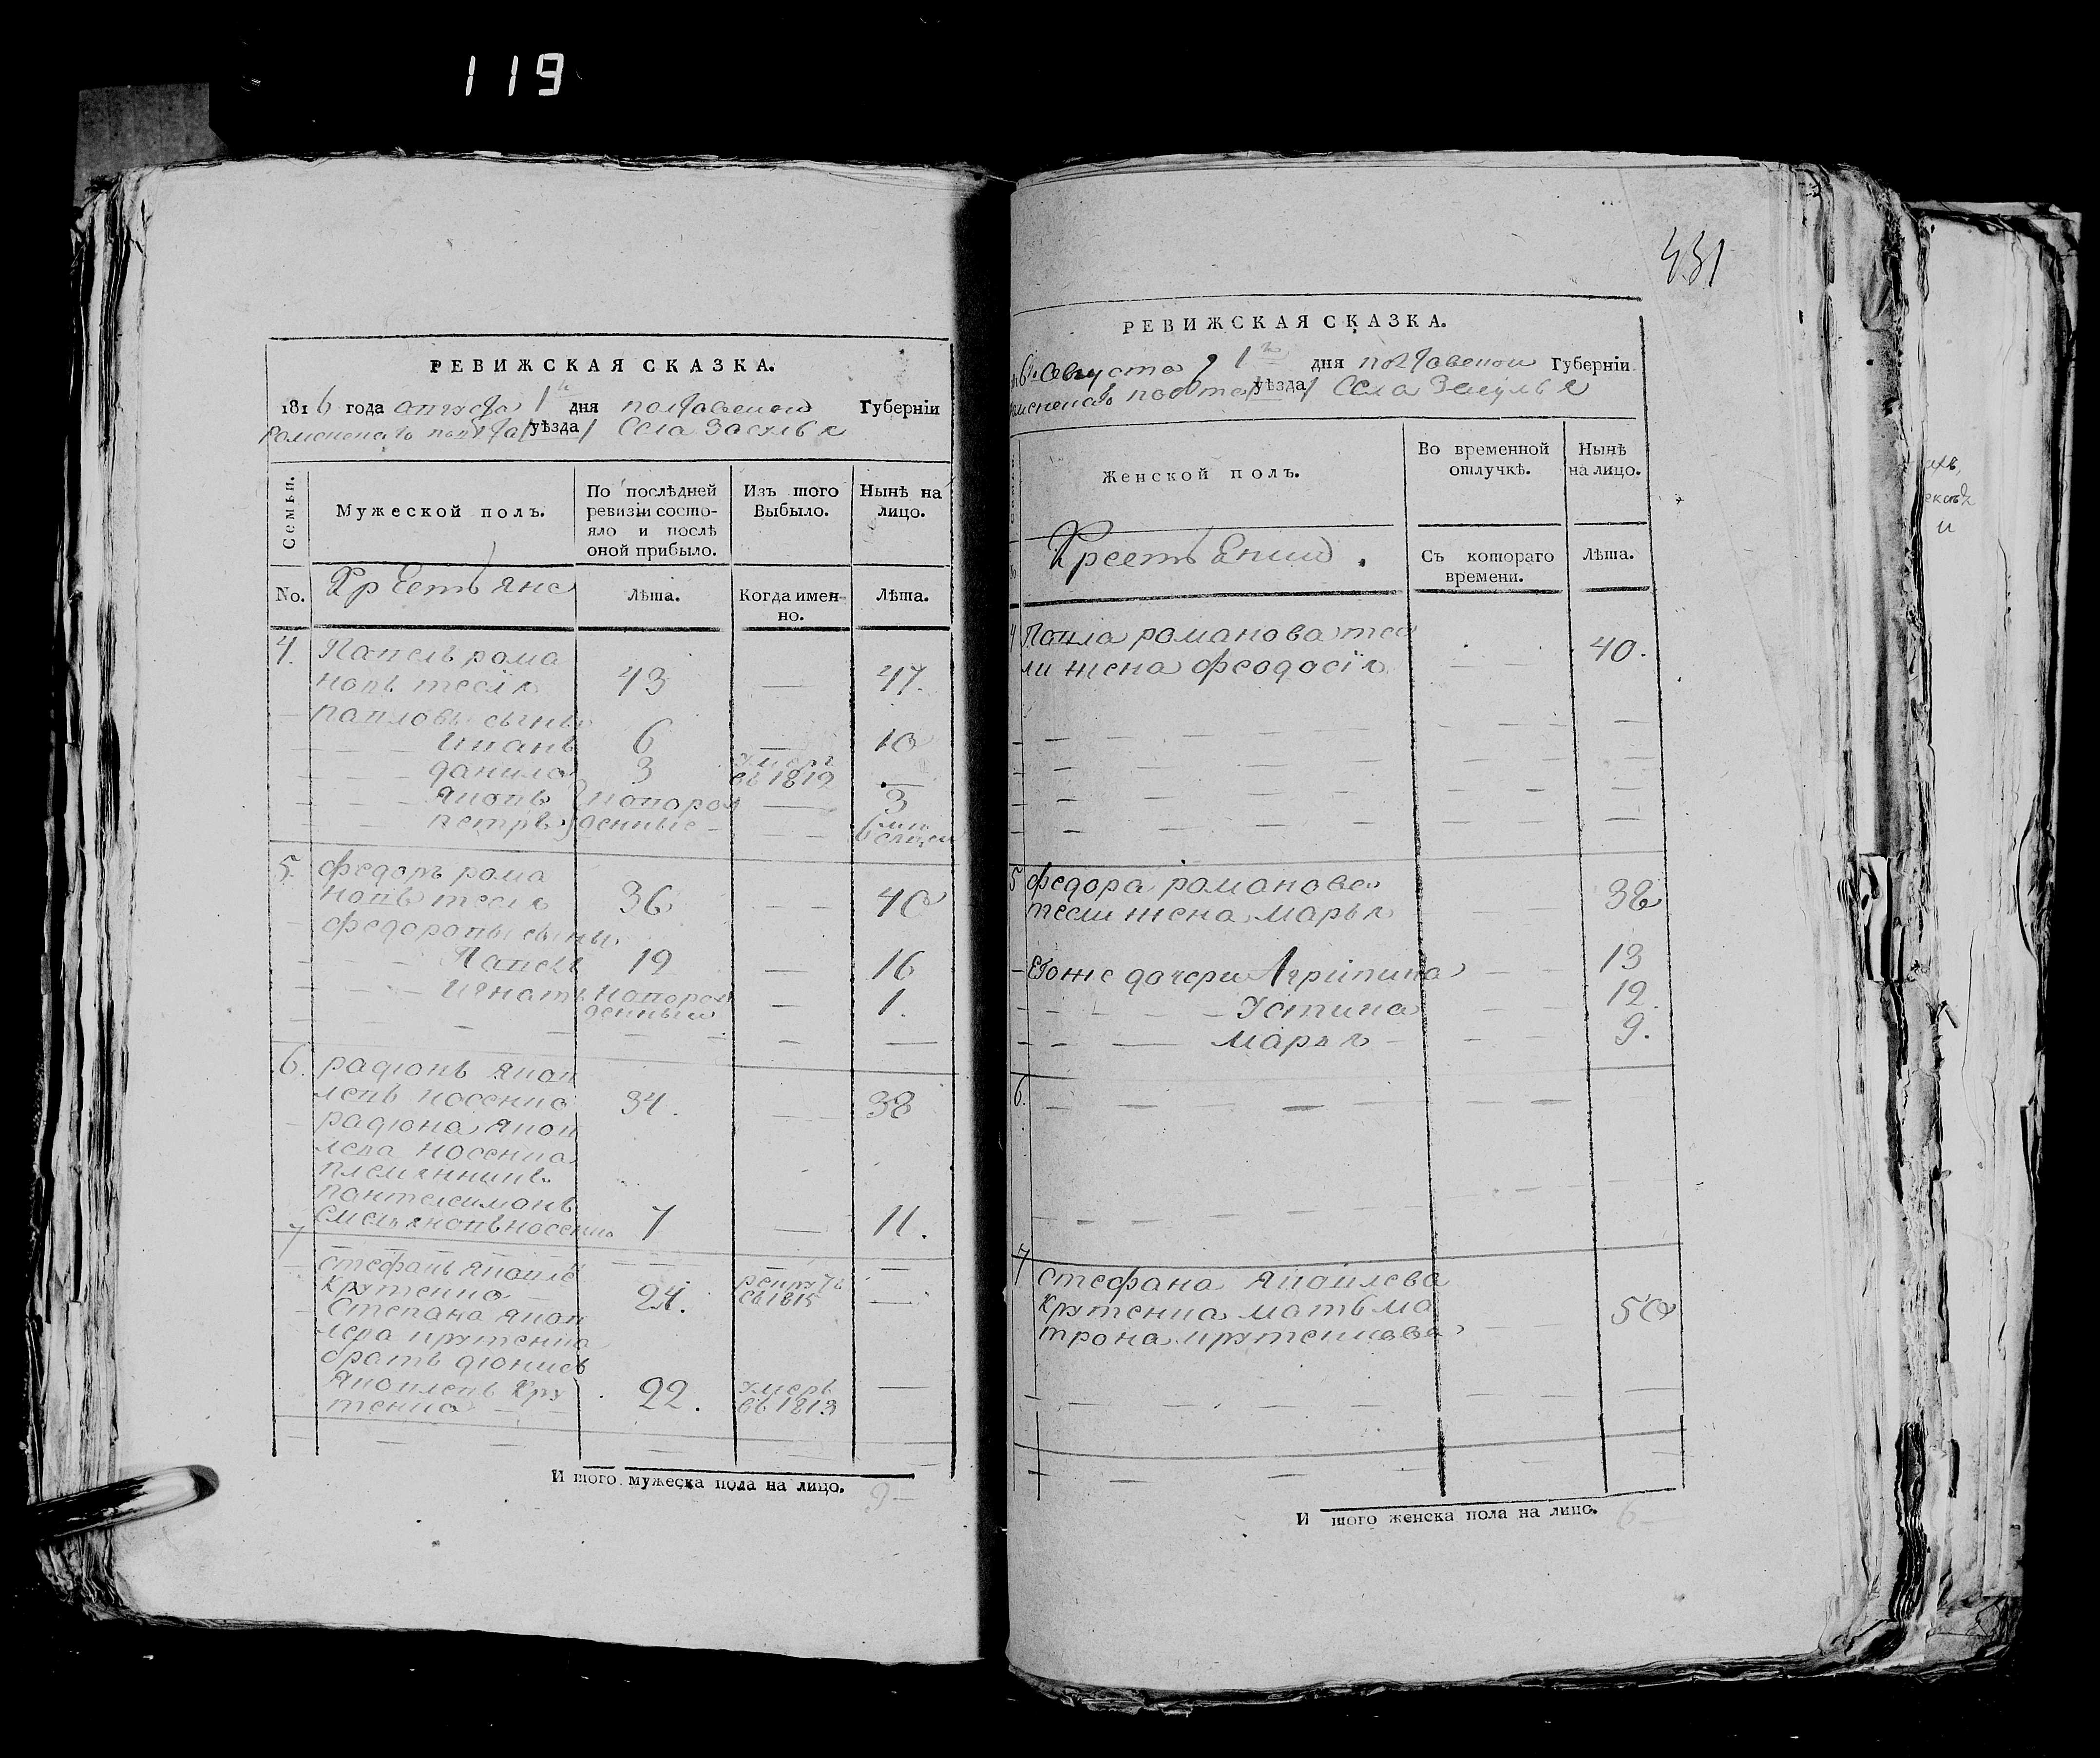 119
РЕВИЖСКАЯ СКАЗКА.
1816 года августа 1 дня полтавской Губернiи
Роменскаго повѣта /уѣзда/ Села Засулья
Семьи.
Мужеской полъ.
По послѣдней ревизiи состояло и послѣ оной прибыло.
Изъ того Выбыло.
Нынѣ на лицо.
No.
Крестьяне
Лѣта.
Когда именно.
Лѣта.
4. Павелъ рома
новъ тесля 43 — 47.
павловы сыны
Иванъ 6 — 10
данило 3 умеръ въ 1812 —
Яковъ новорож 3
петръ денные 6 мѣсяцей
5. федоръ рома
новъ тесля 36 40
федоровы сыны
Павелъ 12 — 16
Игнатъ новорож — 1.
денный
6. радiонъ яков
левъ носенко 34. 38
радiона яков
лева носенка
племянникъ
пантелеимонъ
Емельяновъ носенко 7 — 11.
7
стефанъ яковле
Крутенко 24. рекрутъ въ 1815 —
Степана яков
лева крутенка
братъ дiонисъ
Яковлевъ Кру 22. умеръ —
тенко въ 1813
И того мужеска пола на лицо. 9
431
РЕВИЖСКАЯ СКАЗКА.
августа 1 дня полтавской Губернiи
повѣта /уѣзда/ Села Засулья
Женской полъ.
Во временной отлучкѣ.
Нынѣ на лицо.
Крестьянки.
Съ котораго времени.
Лѣта.
4 Павла романова тес
ли жена феодосiя 40.
5 федора романова
тесли жена марья 38
Егоже дочери Агрiпина 13
Устина 12.
марья 9.
6.
7 стефана яковлева
Крутенка мать ма 50
трона крутенкова
И того женска пола на лицо. 6